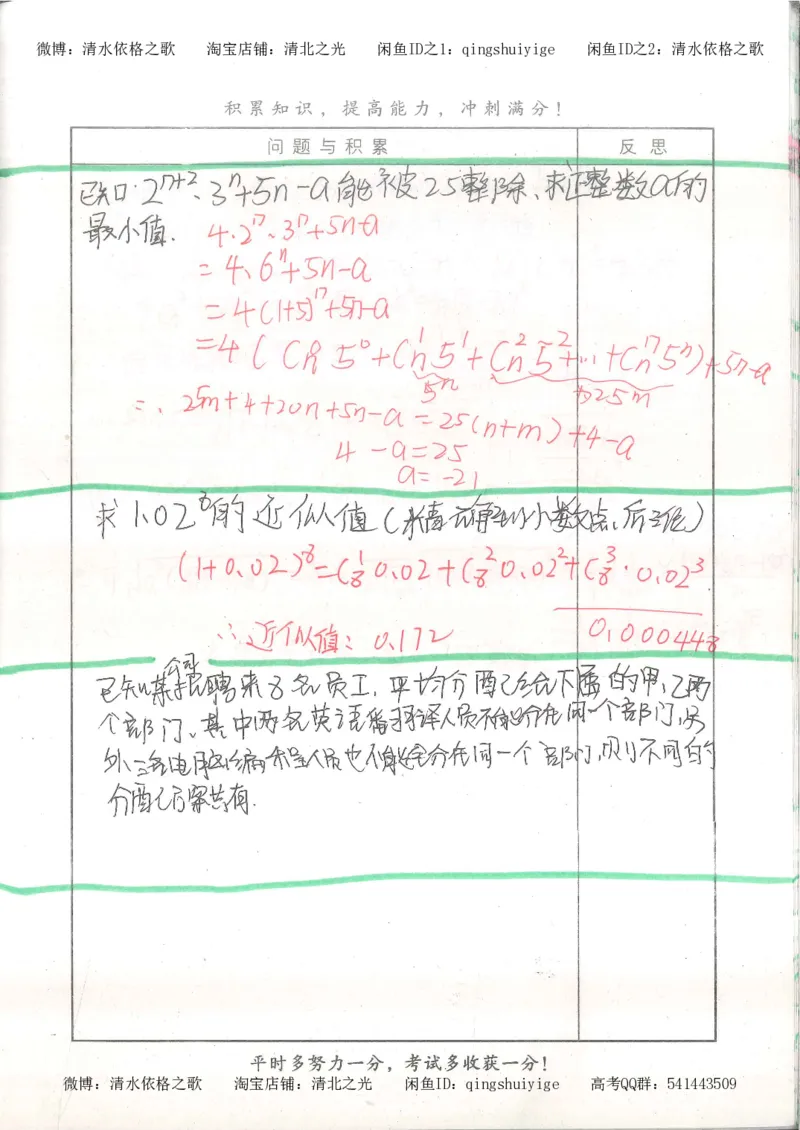 微博：清水依格之歌 淘宝店铺：清北之光 闲鱼ID之1：qingshuiyige 闲鱼ID之2：清水依格之歌
积累知识，提高能力，冲刺满分！
问题与积累 反思
已知·2^{n+2}·3^n+5n-a能被25整除、求正整数a的
最小值.
4·2^n·3^n+5n-a
=4·6^n+5n-a
=4(1+5)^n+5n-a
=4(C_n^0 5^0+C_n^1 5^1+C_n^2 5^2+…+C_n^n 5^n)+5n-a
5n →25m
=、25m+4+20n+5n-a=25(n+m)+4-a
4-a=25
a=-21
求1.02^8的近似值(精确到小数点后三位)
(1+0.02)^8=C_8^1 0.02+C_8^2 0.02^2+C_8^3·0.02^3
0.000448
∴近似值：0.172
公司
已知某招聘来8名员工，平均分配给下属的甲、乙两
个部门、其中两名英语翻译人员不能分在同一个部门，另
外三名电脑编程人员也不能全分在同一个部门，则不同的
分配方案共有.
平时多努力一分，考试多收获一分！
微博：清水依格之歌 淘宝店铺：清北之光 闲鱼ID：qingshuiyige 高考QQ群：541443509